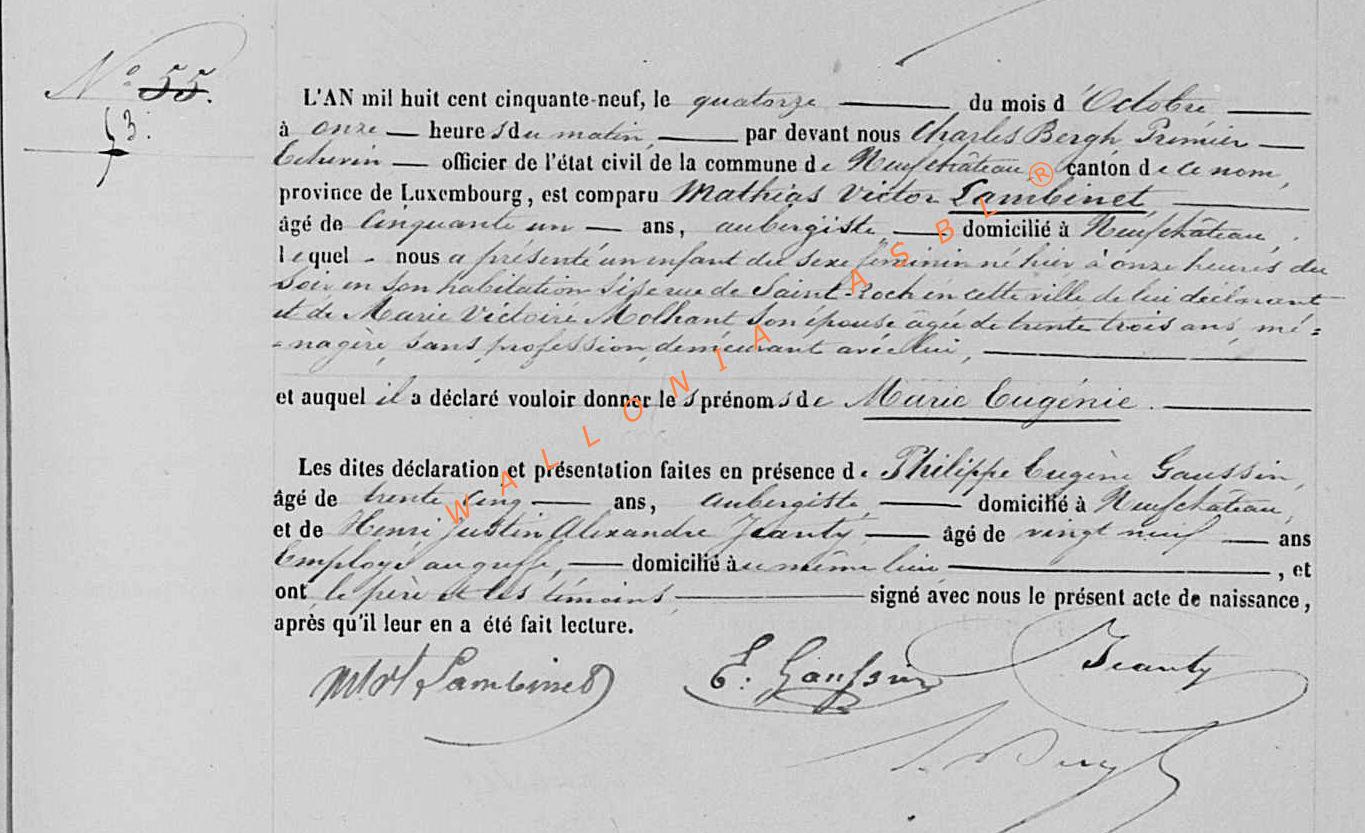 N° 55.
63.
L'AN mil huit cent cinquante-neuf, le quatorze du mois d'Octobre
à onze heures du matin, par devant nous Charles Bergh Premier
Echevin officier de l'état civil de la commune de Neufchâteau, canton de ce nom,
province de Luxembourg, est comparu Mathias Victor Lambinet,
âgé de cinquante un ans, aubergiste domicilié à Neufchâteau,
lequel nous a présenté un enfant du sexe féminin né hier à onze heures du
soir en son habitation sise rue de Saint-Roch en cette ville de lui déclarant
et de Marie Victoire Molhant son épouse âgée de trente trois ans, mé=
-nagère, sans profession, demeurant avec lui,
et auquel il a déclaré vouloir donner les prénoms de Marie Eugénie.
Les dites déclaration et présentation faites en présence de Philippe Eugène Gaussin,
âgé de trente cinq ans, aubergiste, domicilié à Neufchâteau,
et de Henri Justin Alexandre Jeanty, âgé de vingt neuf ans
Employé au greffe, domicilié au même lieu, et
ont le père et les témoins signé avec nous le présent acte de naissance,
après qu'il leur en a été fait lecture.
Lambinet E. Gaussin Jeanty
Bergh
WALLONIA ASBL ®